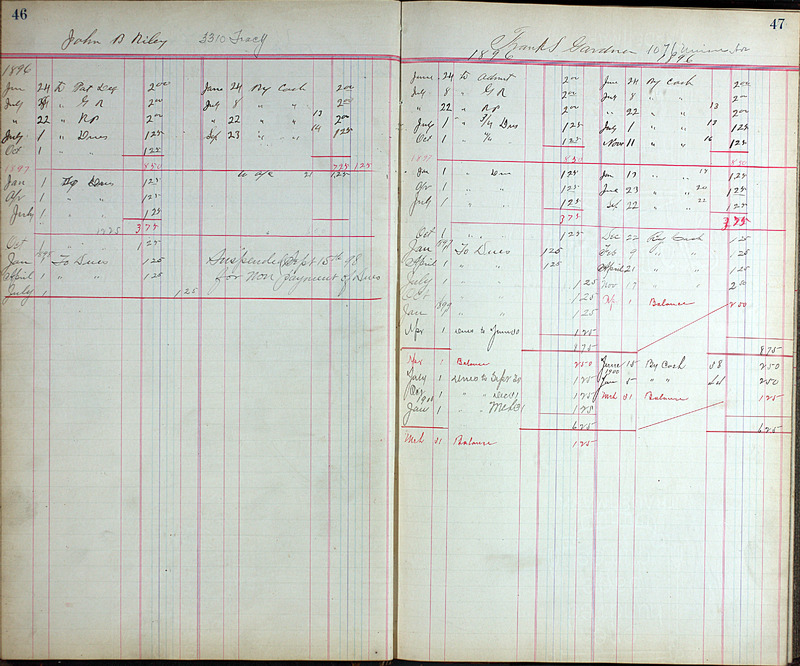 46
John B Riley 3310 Tracy
1896
June 24 to Pat Deg 2 00 June 24 By Cash 2 00
July 8 " G R 2 00 July 8 " " 2 00
" 22 " RP 2 00 " 22 " " 13 2 00
July 1 " Dues 1 25 Sep 23 " " 14 1 25
Oct 1 " " 1 25
1897 8 50 7 25 1 25
Jan 1 To Dues 1 25 21 1 25
Apr 1 " " 1 25
July 1 " " 1 25
3 75
Oct 1 " " 1 25
Jan 1898 To Dues 1 25 Suspended Sept 15th 98
April 1 " " 1 25 for Non payment of Dues
July 1 1 25
47
Frank S Gardner 107
1896 1896
June 24 to Admit 2 00 June 24 By Cash 2 00
July 8 " G R 2 00 July 8 " " 2 00
" 22 " RP 2 00 " 22 " " 13 2 00
July 1 " 3/4 Dues 1 25 July 1 " " 13 1 25
Oct 1 " 1 25 Nov 11 " " 16 1 25
1897 8 50 8 50
Jan 1 " Dues 1 25 Jan 13 " " 1 25
Apr 1 " " 1 25 June 23 " " 20 1 25
July 1 " " 1 25 Sep 22 " " 22 1 25
3 75 3 75
Oct 1 " " 1 25 Dec 22 By Cash 1 25
Jan To Dues 1 25 Feb 9 " " 1 25
April 1 " " 1 25 April 21 " " 1 25
July 1 1 25 Nov 17 " " 2 50
Oct 1 25 Apr 1 Balance 2 50
Jan 1899 " " 1 25
Apr 1 Dues to June 30 1 25
8 75 8 75
Apr 1 Balance 2 50 June 15 By Cash 58 2 50
July 1 Dues to Sept 30 1 25 1900 Jan 5 " " 2 50
Oct 1 " " Dec 31 1 25 Mch 31 Balance 1 25
Jan 1900 1 " " Mch 31 1 25
6 25 6 25
Mch 31 Balance 1 25